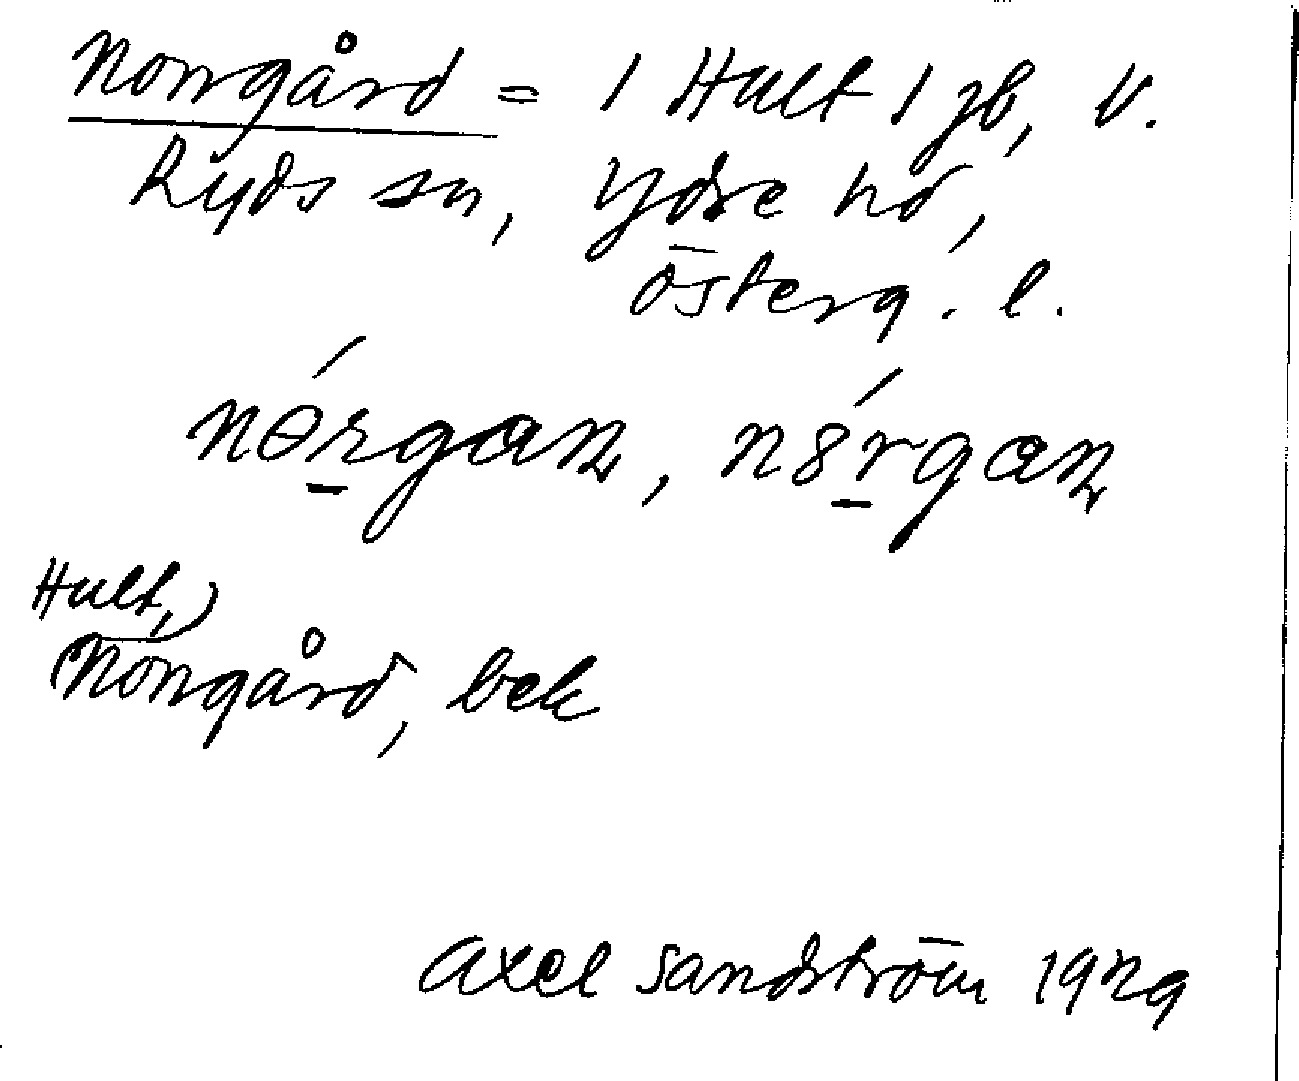 Norrgård = 1 Hult 1 jb, V.
Ryds sn, Ydre hd,
Österg. l.
nórgan, nórgan
Hult,)
(Norrgård, bek
Axel Sandström 1929